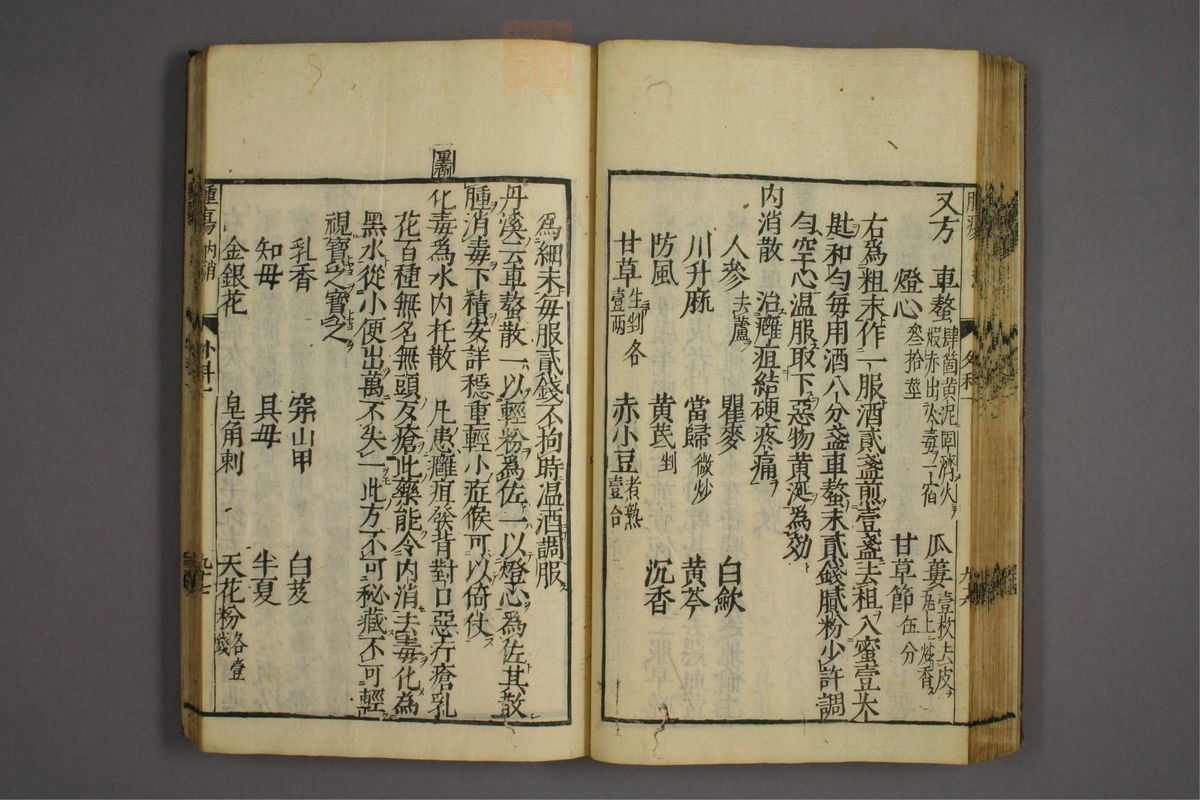 又方 車螯肆箇黄泥固濟火煅赤出火毒一宿 瓜蔞壹枚去皮尾上炒香
燈心叁拾莖 甘草節伍分
右為粗末作一服酒貳盞煎壹盞去粗入蜜壹大
匙和勻毎用酒八分盞車螯末貳錢膩粉少許調
勻空心温服取下惡物黄涎為効
内消散 治癰疽結硬疼痛
人參去蘆 瞿麥 白歛
川升麻 當歸微炒 黄芩
防風 黄芪剉 沉香
甘草生剉壹两各 赤小豆煮熟壹合
為細末毎服貳錢不拘時温酒調服
丹溪云車螯散一以輕粉為佐一以燈心為佐其散
腫消毒下積安詳穩重輕小症候可以倚仗
化毒為水内托散 凡患癰疽發背對口惡疔瘡乳
花百種無名無頭歹瘡此藥能令内消去毒化為
黑水從小便出萬不失一此方不可秘藏不可輕
視寳之寳之
乳香 穿山甲 白芨
知毋 貝毋 半夏
金銀花 皂角刺 天花粉各壹錢
腫瘍 内消 外科一 九十七
外科一 九十六